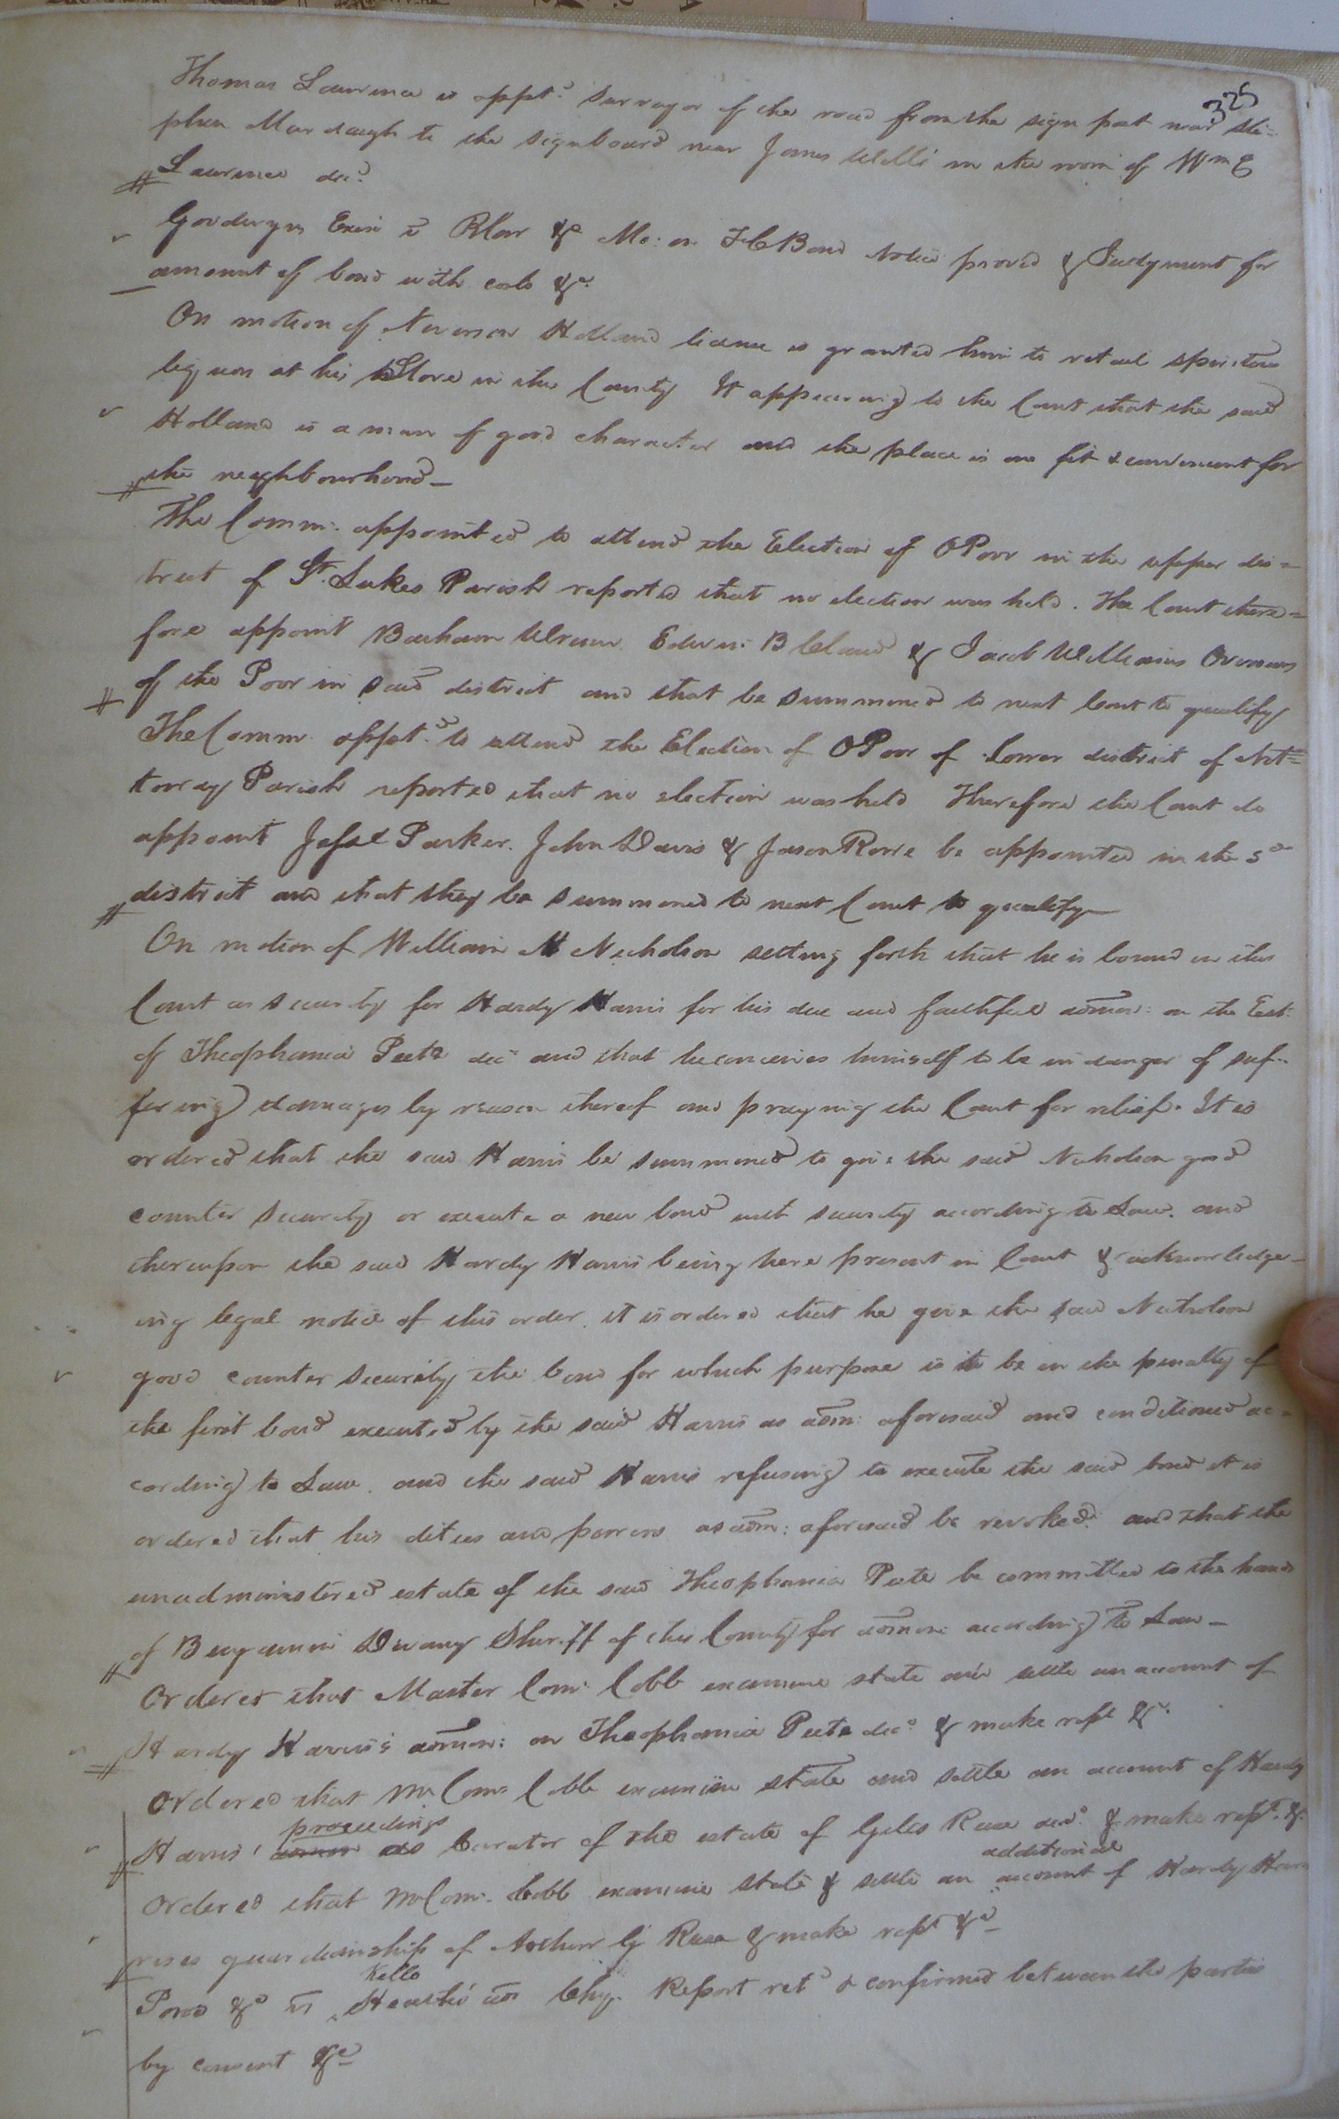 325
Thomas Lawrence is appt.d Surveyor of the road from the sign post near Ste=
phen Murdaugh to the signboard near James Wills in the room of Wm E
Lawrence decd
Goodwyn Exor vs Blow &c Mo: on F C Bond Notice proved & Judgment for
amount of bond with costs &c
On motion of Nevison Holland license is granted him to retail spiritous
liquors at his Store in this County It appearing to the Court that the said
Holland is a man of good character and the place is one fit & convenient for
the neighbourhood—
The Comm: appointed to attend the Election of O Poor in the upper dis=
trict of St Lukes Parish reported that no election was held. The Court there=
fore appoint Barham Edwin B Claud & Jacob Williams Overseers
of the Poor in said district and that be summoned to next Court to qualify
The Comm appt.d to attend the Election of O Poor of Lower district of Not=
toway Parish reported that no election was held Therefore the Court do
appoint Parker. John Davis & Jason Rowe be appointed in the sd
district and that they be summoned to next Court to qualify—
On motion of William N Nicholson setting forth that he is bound in this
Court as security for Hardy Harris for his due and faithful admon: on the Est:
of Theophania Peete decd and that he conceives himself to be in danger of suf-
fering damages by reason thereof and praying the Court for relief. It is
ordered that the said Harris be summoned to give the said Nicholson good
counter security or execute a new bond with security according to Law. and
thereupon the said Hardy Harris being here present in Court & acknowledge-
ing legal notice of this order. it is ordered that he give the said Nicholson
good counter security the bond for which purpose is to be in the penalty of
the first bond executed by the said Harris as adm: aforesaid and conditioned ac-
cording to Law. and the said Harris refusing to execute the said bond it is
ordered that his duties and powers as adm: aforesaid be revoked. and that the
unadministered estate of the said Theophania Peete be committed to the hands
of Benjamin Devany Sheriff of this County for admon: according to Law—
Ordered that Master Comr Cobb examine state and settle an account of
Hardy Harris's admon: on Theophania Peete decd & make rept &c
Ordered that M Comr Cobb examine state and settle an account of Hardy
Harris' proceedings as Curator of the estate of Giles Reese decd & make rept. &c
Ordered that M Comr. Cobb examine state & settle an additional account of Hardy Har
rises guardianship of Arthur G Reese & make rept &c
Pond &c vs Kello Heath's adm Chy. Report retd & confirmed between the parties
by consent &c